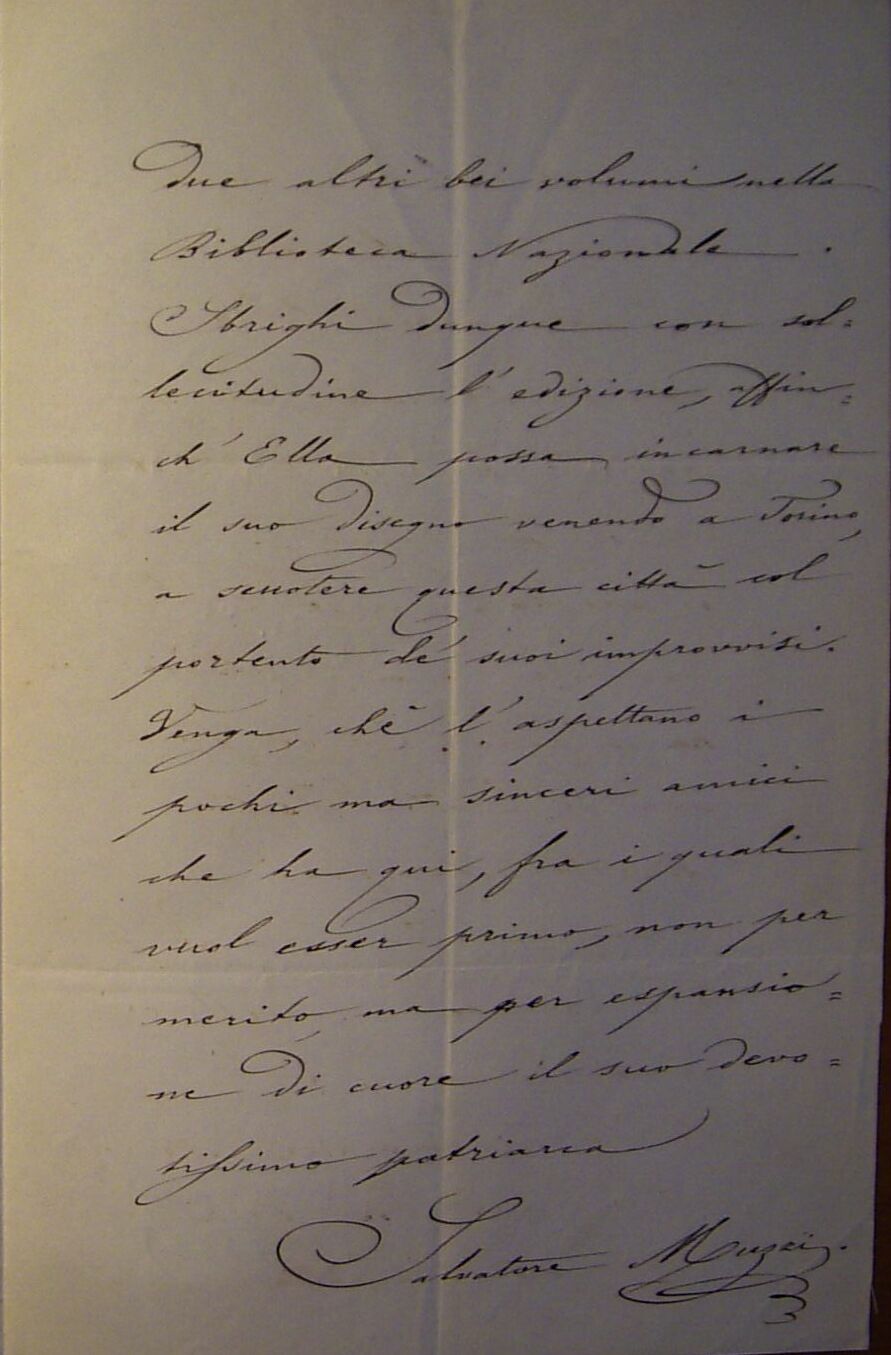 Due altri bei volumi nella
Biblioteca Nazionale.
Sbrighi dunque con sol=
lecitudine l'edizione, affin=
ch'Ella possa incarnare
il suo disegno venendo a Torino,
a scuotere questa città col
portento de' suoi improvvisi.
Venga, chè l'aspettano i
pochi ma sinceri amici
che ha qui, fra i quali
vuol esser primo, non per
merito, ma per espansio=
ne di cuore il suo devo=
tissimo patriarca
Salvatore Muzzi.